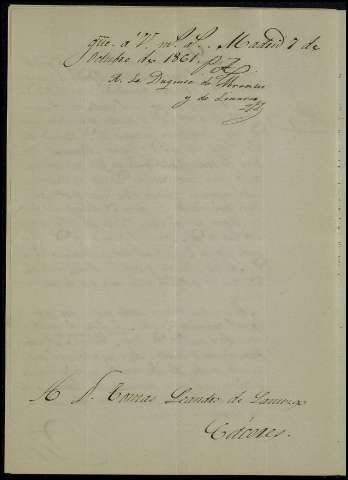 gue. á V. ms. as. Madrid 7 de
Octubre de 1861.
A. La Duquesa de Abrantes
y de Linares
A D. Tomas Leandro de
Cáceres.